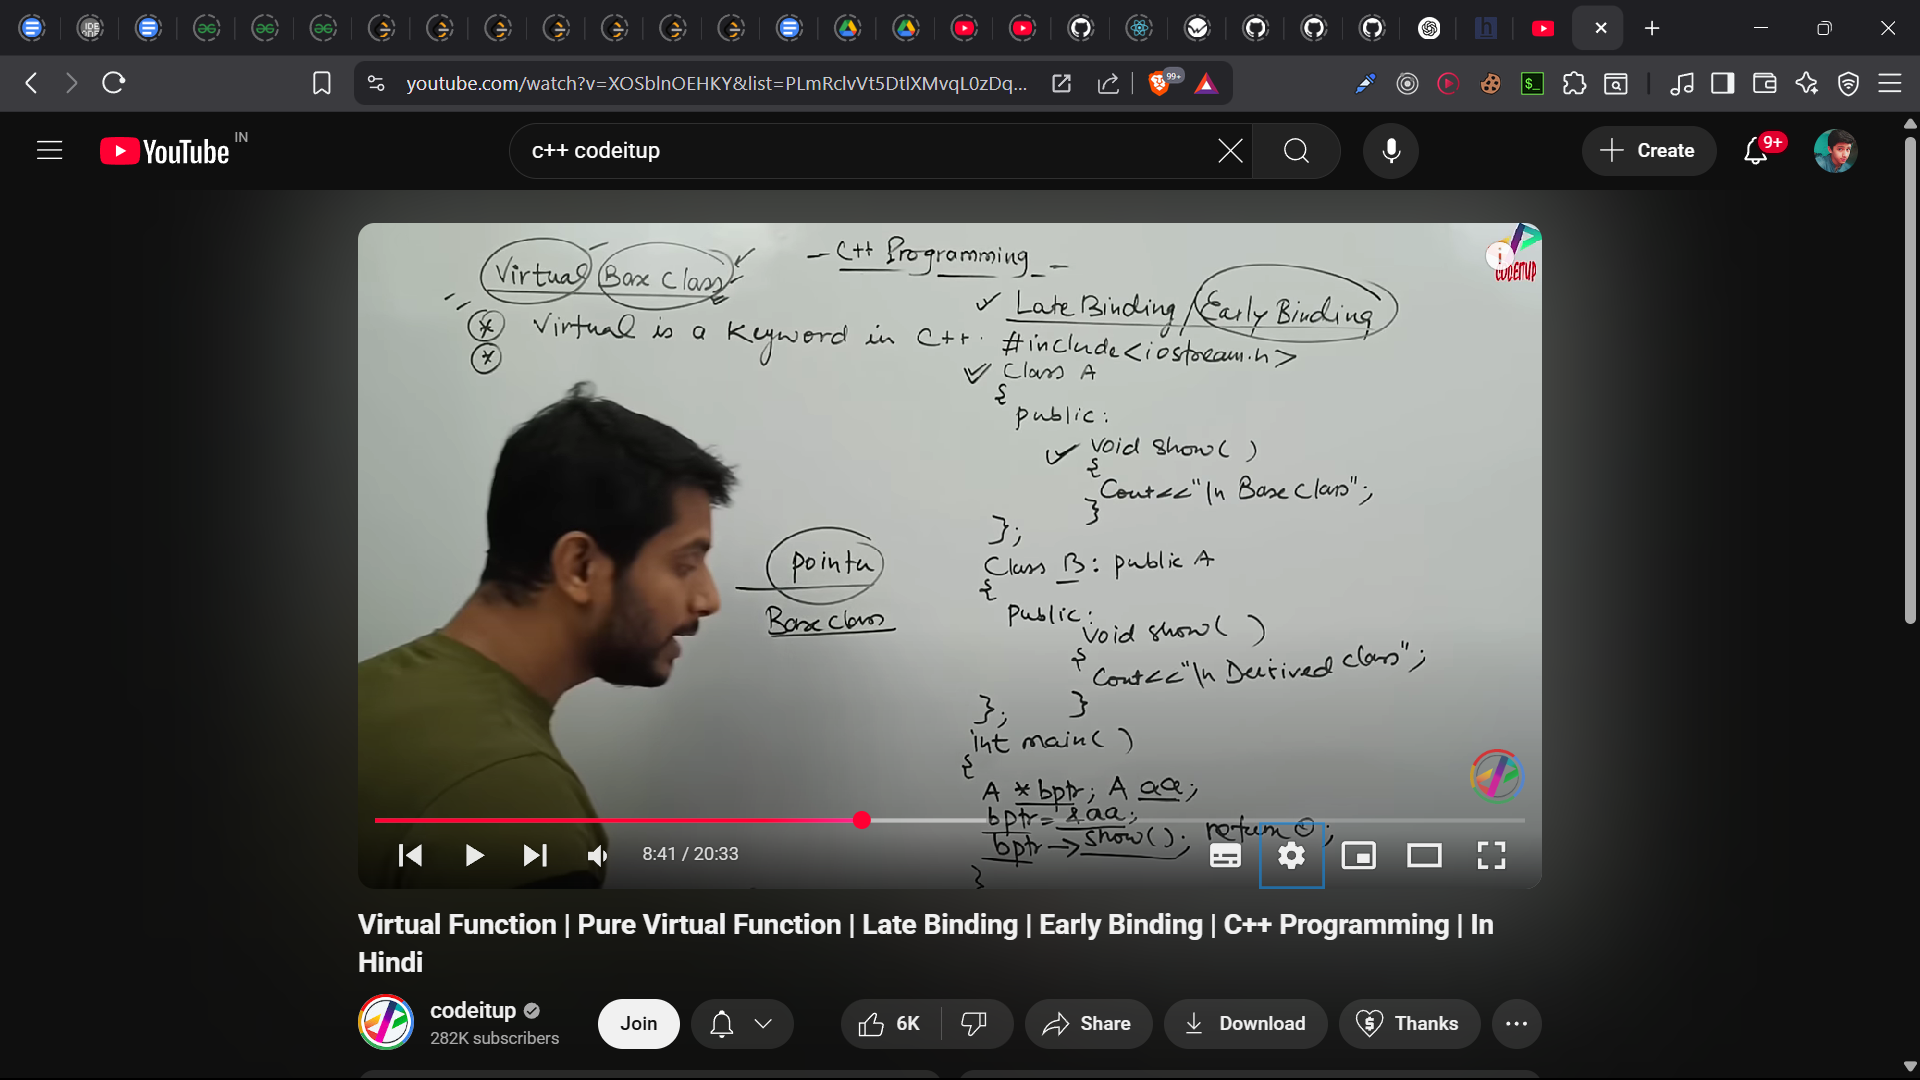 youtube.com/watch?v=XOSblnOEHKY&list=PLmRclvVt5DtlXMvqL0zDq...
99+
YouTube IN
c++ codeitup
Create
9+
- C++ Programming -
Virtual Base Class
Virtual is a Keyword in C++.
pointer
Base class
Late Binding / Early Binding
#include<iostream.h>
Class A
{
public:
void show( )
{
Cout<<"\n Base Class";
}
};
Class B: public A
{
Public:
void show( )
{
Cout<<"\n Derived class";
}
};
int main( )
{
A *bptr; A aa;
bptr= &aa;
bptr->show(); return 0;
}
CODEITUP
8:41 / 20:33
Virtual Function | Pure Virtual Function | Late Binding | Early Binding | C++ Programming | In
Hindi
codeitup
282K subscribers
Join
6K
Share
Download
Thanks